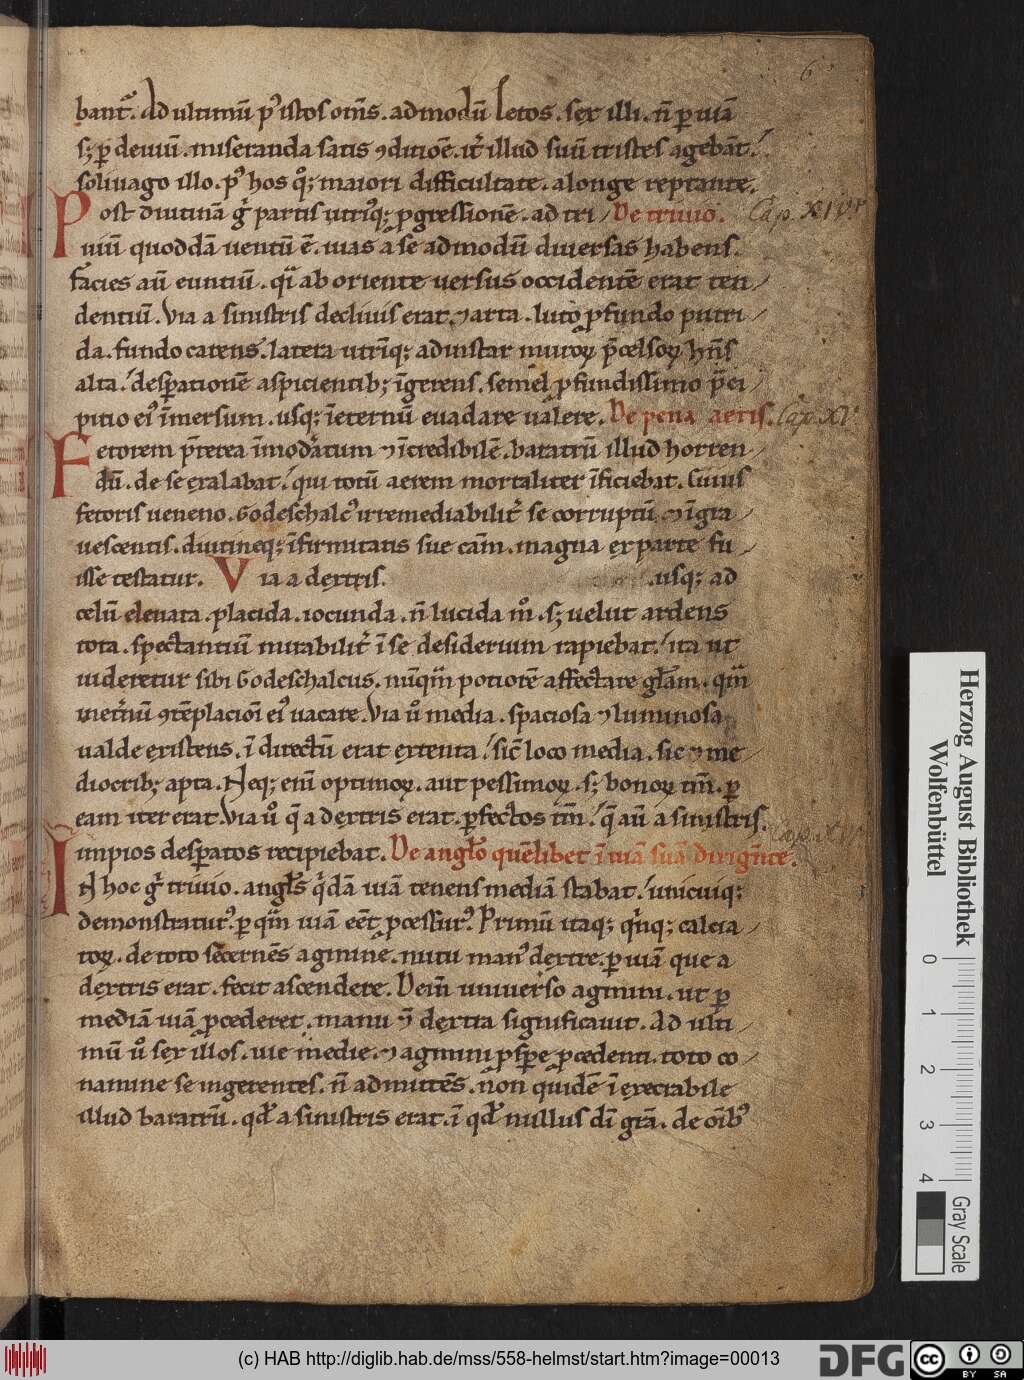 6
bant᷑. Ad ultimū p᷒ istos om̄s. ad modū letos. sex illi. n̄ ꝑ uiā
sꝫ ꝑ deuiū. miseranda satis ꝯditiōe. it᷑ illud suū tristes agebāt.
soliuago illo. p᷒ hos q̊ꝫ maiori difficultate. a longe reptante.
Post diutinā g̊ partis utriꝰqꝫ ꝓgressionē. ad tri / De triuio. Cap. XIV.
uiū quoddā uentū ē. uias a se ad modū diuersas habens.
facies aū euntiū. qͥa ab oriente uersus occidentē erat ten /
dentiū. Via a sinistris decliuis erat. ⁊ arta. luto ꝓfundo putri /
da. fundo carens. latera utrīqꝫ ad instar muroꝝ p̄celsoꝝ hn̄s
alta. desꝑationē aspicientibꝫ īgerens. semel ꝓfundissimo p̄ci /
pitio eiꝰ īmersum. usqꝫ ī eternū euadare ualere. De pena aeris. Cap. XV.
Fetorem p̄terea īmod᷑atum ⁊ īcredibilē. baratrū illud horren /
dū. de se exalabat. qui totū aerem mortaliter īficiebat. Cuius
fetoris ueneno. Godeschalcꝰ irremediabilit᷑ se corruptū. ⁊ īgra /
uescentis. diutineqꝫ īfirmitatis sue cām. magna ex parte fu /
isse testatur. Via a dextris. .usqꝫ ad
celū eleuata. placida. iocunda. n̄ lucida m̊. sꝫ uelut ardens
tota. spectantiū mirabilit᷑ ī se desiderium rapiebat. ita ut
uideretur sibi Godeschalcus. nūqͣm potiorē affectare gl̄am. qͣm
inet᷑nū ꝯtēplacioī eiꝰ uacare. Via ů media. spaciosa ⁊ luminosa
ualde existens. ī directū erat extenta. sic̄ loco media. sic ⁊ me /
diocribꝫ apta. Neqꝫ enī optimoꝝ. aut pessimoꝝ. sꝫ bonoꝝ tm̄. ꝑ
eam iter erat. Via ů q̄ a dextris erat. ꝑfectos tm̄. q̄ aū a sinistris.
impios desꝑatos recipiebat. De angl̄o quēlibet ī uiā suā dirigēte.
IN hoc g̊ triuio. angl̄s qͥdā uiā tenens mediā stabat. unicuiqꝫ
demonstraturꝰ. ꝑ qͣm uiā eēt ꝓcessurꝰ. Primū itaqꝫ qͥnqꝫ calcia /
toꝝ. de toto secernēs agmine. nutu manꝰ dextre. ꝑ uiā que a
dextris erat. fecit ascendere. Dein̄ uniuerso agmini. ut ꝑ
mediā uiā ꝓcederet. manu ⁊ dextra significauit. Ad ulti /
mū ů sex illos. uie medie. ⁊ agmini ꝓspe ꝓcedenti. toto co /
namine se ingerentes. n̄ admittēs. non quidē ī exectabile
illud baratrū. qd̄ a sinistris erat. ī qd̄ nullus dī grā. de oībꝰ
Herzog August Bibliothek
Wolfenbüttel
0 1 2 3 4
Gray Scale
(c) HAB http://diglib.hab.de/mss/558-helmst/start.htm?image=00013
DFG
cc
BY SA